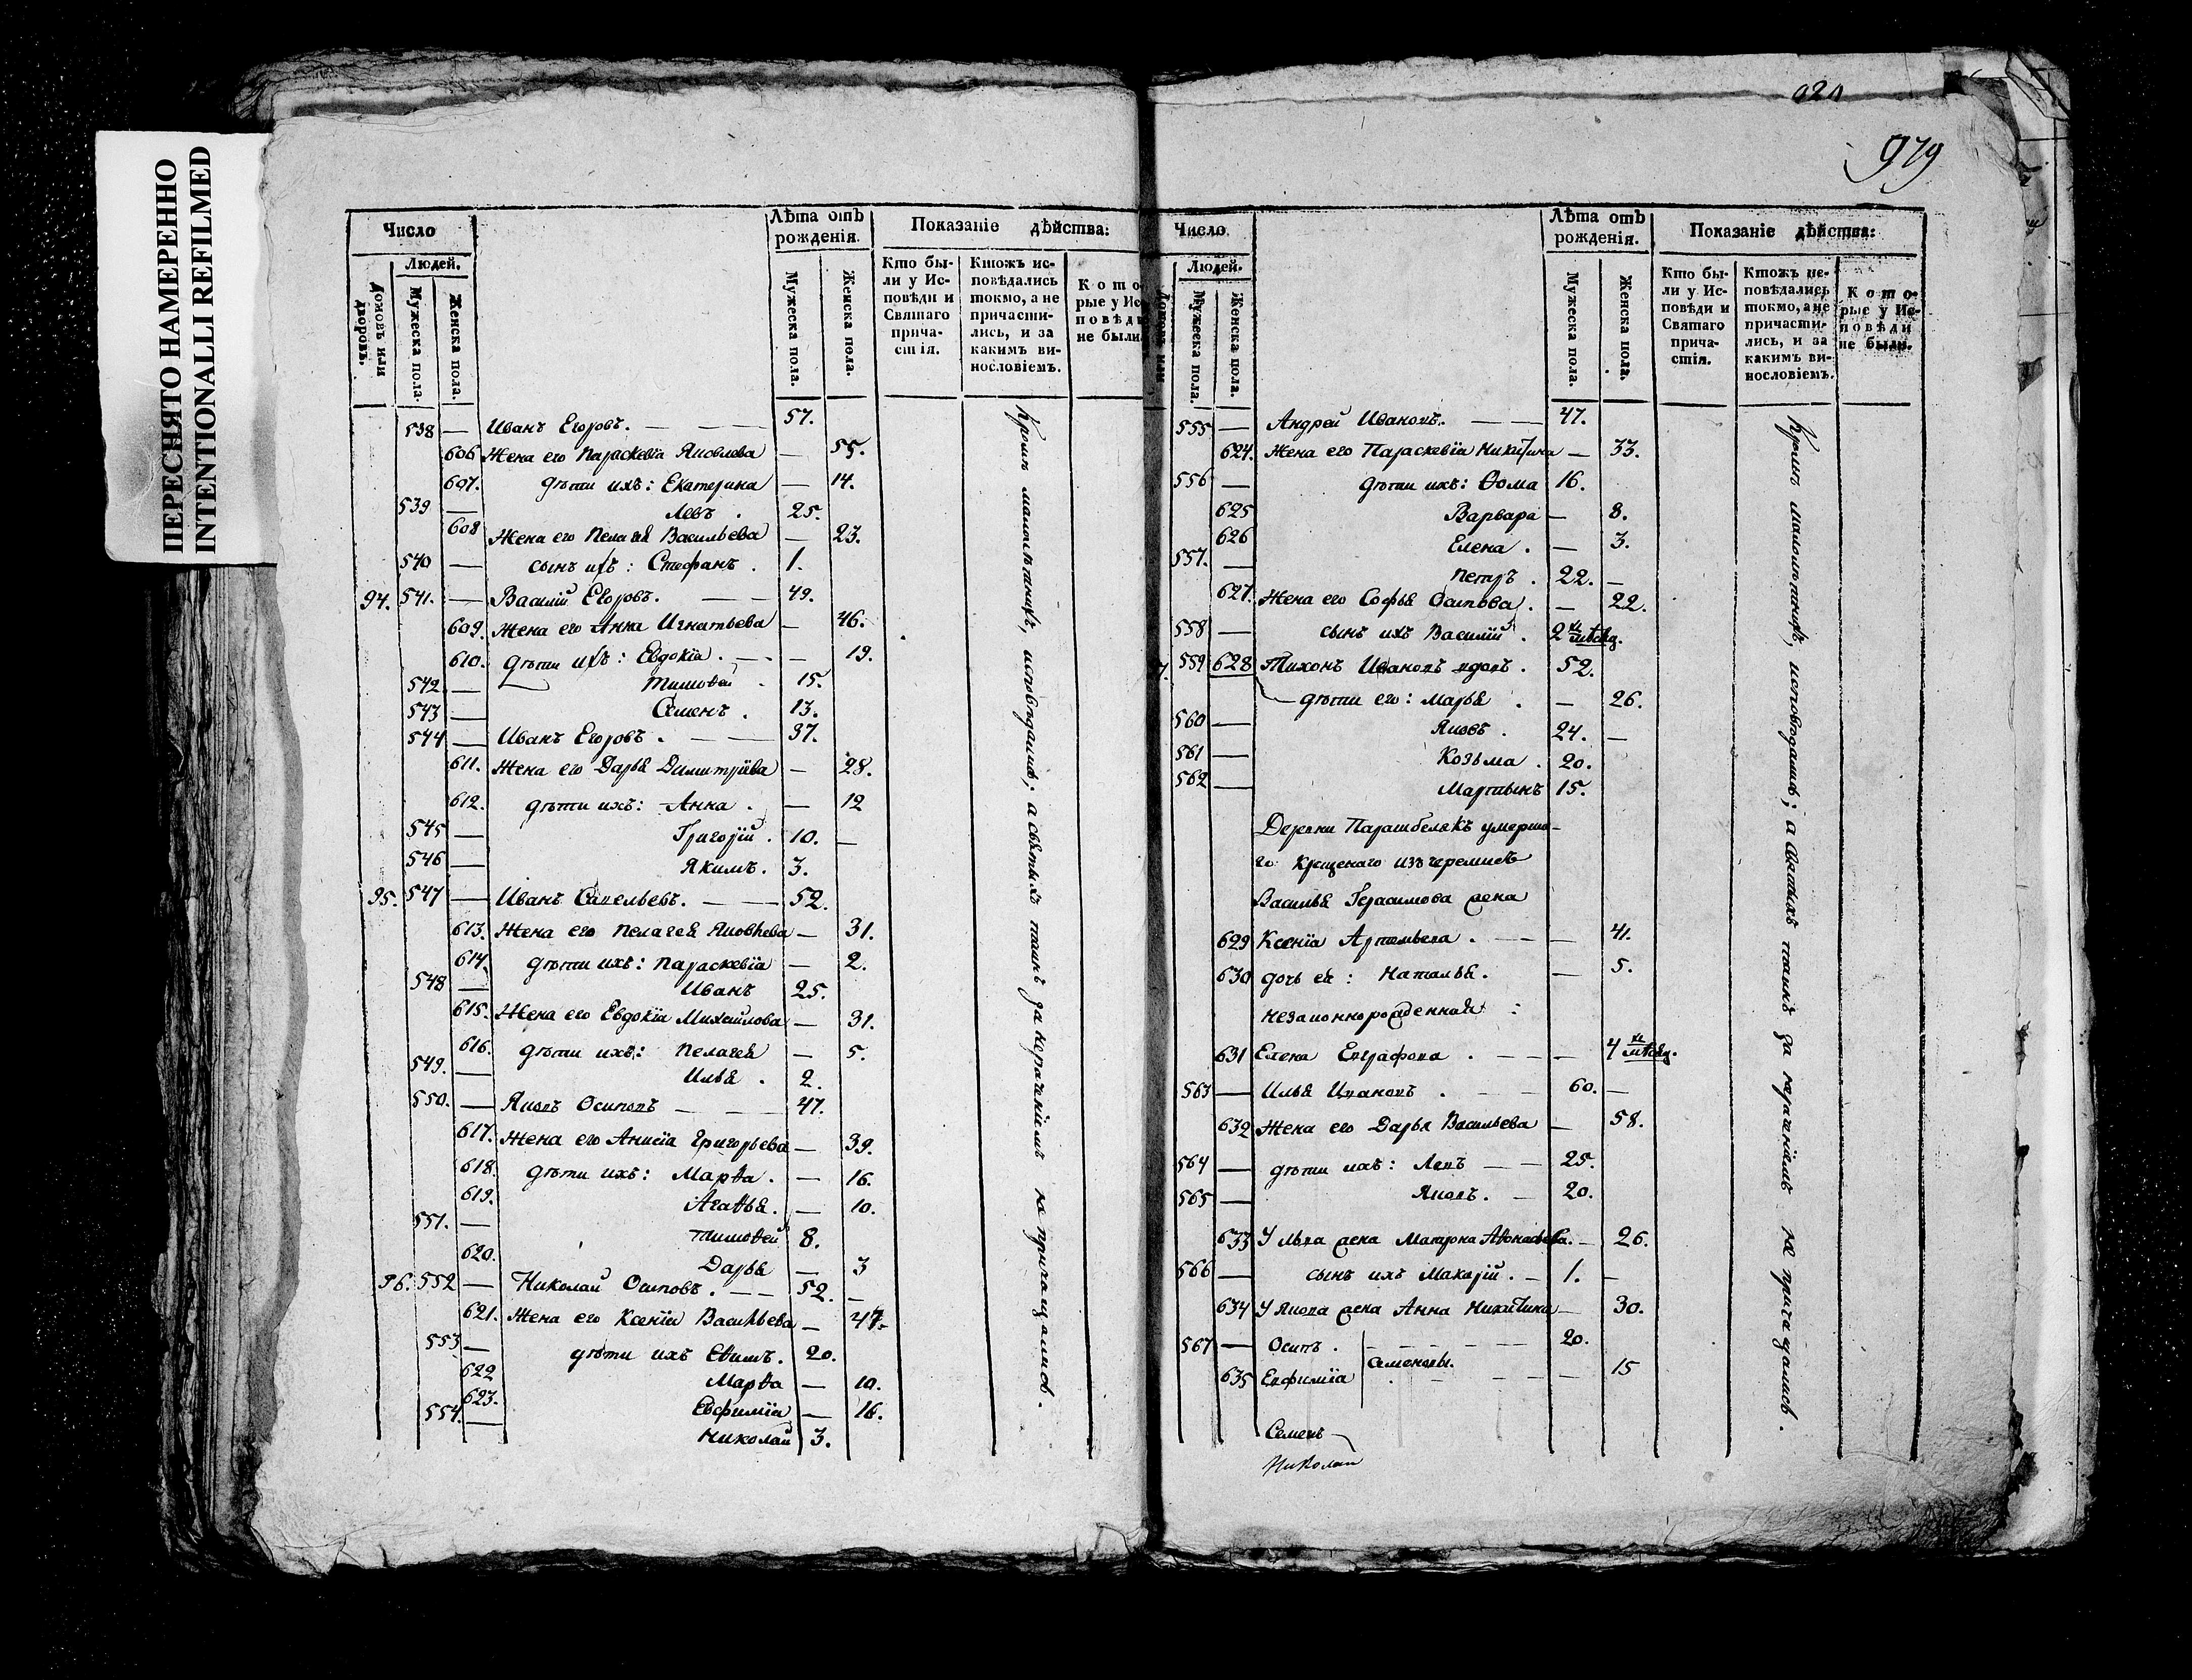 ПЕРЕСНЯТО НАМЕРЕННО
INTENTIONALLI REFILMED
979
Число
Людей.
Домовъ или дворовъ.
Мужеска пола.
Женска пола.
Лѣта отъ рожденія.
Мужеска пола.
Женска пола.
Показаніе дѣйства:
Кто бы-
ли у Ис-
повѣди и
Святаго
прича-
стія.
Ктожъ ис-
повѣдались
токмо, а не
причасти-
лись, и за
какимъ ви-
нословіемъ.
Кото-
рые у Ис
повѣди
не были
538 — Иванъ Егоровъ. — — — 57.
606 Жена его Параскевіа Яковлева — 55.
607. дѣти ихъ: Екатерина — 14.
539 — Левъ . 25.
608 Жена его Пелагея Васильева — 23.
540 — сынъ ихъ: Стефанъ . 1.
94. 541. — Василій Егоровъ. — — 49.
609. Жена его Анна Игнатьева — 46.
610. дѣти ихъ: Евдокіа . — - — 19.
542 — Тимоѳей . 15.
543 — Семенъ . 13.
544 — Иванъ Егоровъ . — — 37.
611. Жена его Дарья Димитріева — 28.
612. дѣти ихъ: Анна . — 12
545 — Григорій . 10. —
546 — Якимъ . 3.
95. 547 — Иванъ Савельевъ. — — 52.
613. Жена его Пелагея Яковлева — 31.
614. дѣти ихъ: Параскевіа — 2.
548 — Иванъ 25.
615. Жена его Евдокіа Михайлова — 31.
616. дѣти ихъ: Пелагея — 5.
549. — Илья . 2.
550. — Яковъ Осиповъ — — 47.
617. Жена его Анисіа Григорьева — 39.
618. дѣти ихъ: Марѳа . — 16.
619. Агаѳья . — 10.
551. — Тимоѳей 8.
620. Дарья — 3
96. 552 — Николай Осиповъ . — — 52. —
621. Жена его Ксеніа Васильева — 47.
553 — дѣти ихъ Еѳимъ. 20.
622 Марѳа — 10.
623. Евфиміа — 16.
554. — Николай 3.
Кромѣ малолѣтныхъ, исповѣдались; а святыхъ таинъ за нераченіемъ не причащались.
Число
Людей.
Мужеска пола.
Женска пола.
Лѣта отъ рожденія.
Мужеска пола.
Женска пола.
Показаніе дѣйства:
Кто бы-
ли у Ис-
повѣди и
Святаго
прича-
стія.
Ктожъ ис-
повѣдались
токмо, а не
причасти-
лись, и за
какимъ ви-
нословіемъ.
Кото-
рые у Ис-
повѣди
не были.
555 — Андрей Ивановъ. — — 47.
624. Жена его Параскевіа Никитина — 33.
556 — дѣти ихъ: Ѳома 16.
625 Варвара — 8.
626 Елена . — 3.
557. — Петръ . 22. —
627. Жена его Софья Осипова . — 22.
558 — сынъ ихъ Василій . 2 мѣсяц.
559 628 Тихонъ Ивановъ вдовъ . 52.
дѣти его: Марья . — 26.
560 — Яковъ . 24. —
561 — Козьма . 20.
562 — Мартынъ 15.
Деревни Парашбелякъ умерша-
го крещенаго изъ черемисъ
Василья Герасимова жена
629 Ксеніа Артемьева . — — — 41.
630 дочь ея: Наталья . — 5.
незаконнорожденная :
631 Елена Евграфова . — — — 4 мѣсяц.
563 — Илья Ивановъ . — — 60. —
632 Жена его Дарья Васильева — 58.
564 — дѣти ихъ: Левъ — — 25.
565 — Яковъ . — 20.
633 У Льва жена Матрона Аѳонасьева. — 26.
566 — сынъ ихъ Макарій . — 1. —
634 У Якова жена Анна Никитина — 30.
567 — Осипъ . — — — — 20.
Семеновы.
635 Евфиміа . — — — 15
Семенъ
Николай
Кромѣ малолѣтныхъ, исповѣдались; а святыхъ таинъ за нераченіемъ не причащались.